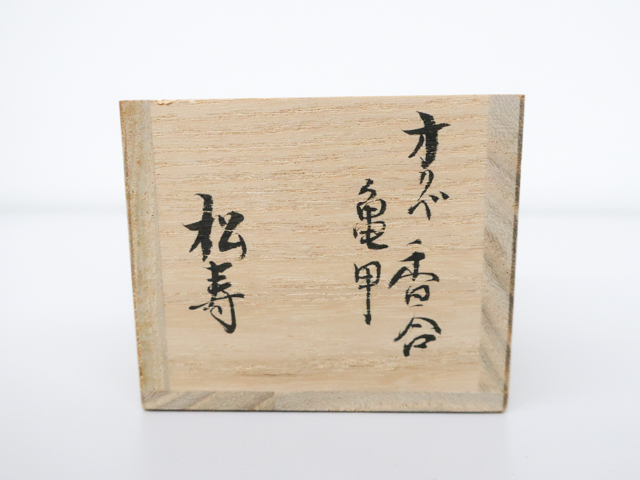 オリベ 香合
亀甲
松寿